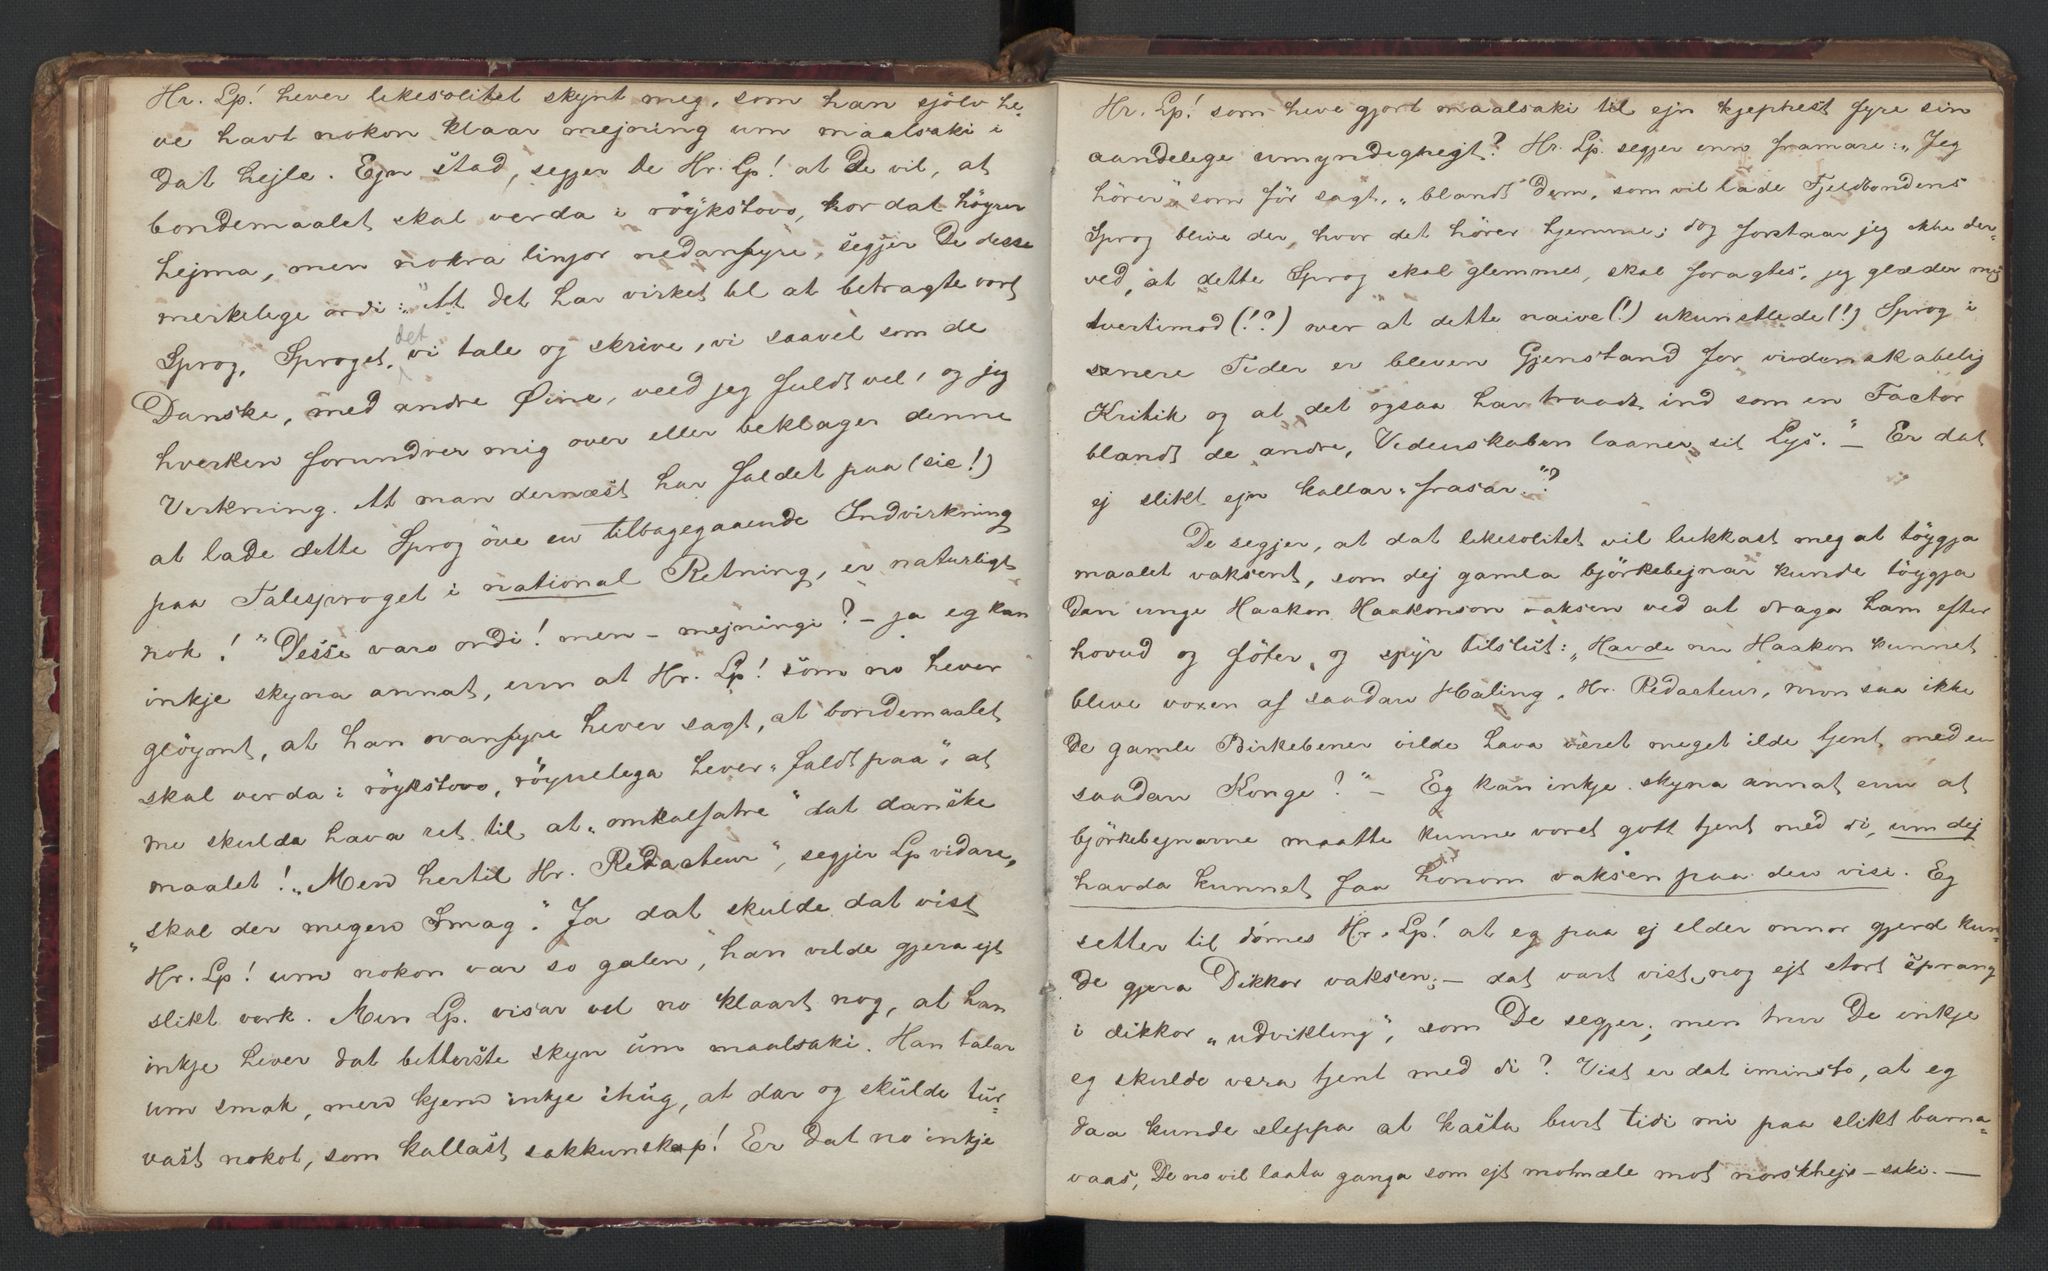 Hr. Lp! hever likesolitet skynt meg, som han sjölv he-
ve havt nokon klaar mejning um maalsaki i
dat hejle. Ejn stad, segjer De Hr. Lp! at De vil, at
bondemaalet skal verda i röykstovo, hor dat höyrer
hejma, men nokra linjor nedanfyre, segjer De desse
merkelege ordi: „At det har virket til at betragte vort
Sprog, Sproget, det vi tale og skrive, vi saavel som de
Danske, med andre Øine, veed jeg fuldt vel, og jeg
hverken forundrer mig over eller beklager denne
Virkning. At man dernæst har faldet paa (sic!)
at lade dette Sprog öve en tilbagegaaende Indvirkning
paa Talesproget i national Retning, er naturligt
nok!" Desse varo ordi! men – mejningi? – ja eg kan
inkje skyna annat, enn at Hr. Lp! som no hever
glöymt, at han ovanfyre hever sagt, at bondemaalet
skal verda i röykstovo, röynelega hever „faldt paa", at
me skulda hava ret til at „omkalfatre" dat danske
maalet! „Men hertil Hr. Redacteur", segjer Lp vidare,
„skal der megen Smag". Ja dat skulde dat vist
Hr. Lp! um nokon var so galen, han vilde gjera ejt
slikt verk. Men Lp. visar vel no klaart nog, at han
inkje hever dat betterste skyn um maalsaki. Han talar
um smak, men kjem inkje ihug, at dar og skulde tur-
vast nokot, som kallast sakkunskap! Er dat no inkje
Hr. Lp! som heve gjort maalsaki til ejn kjephest fyre sin
aandelege umyndighejt? Hr. Lp. segjer enn framare: „Jeg
hörer" som för sagt, „blandt dem, som vil lade Fjeldbondens
Sprog blive der, hvor det hörer hjemme; dog forstaar jeg ikke der-
ved, at dette Sprog skal glemmes, skal foragtes, jeg glæder mig
tvertimod (!?) over at dette naive (!) ukunstlede (!) Sprog i
senere Tider er bleven Gjenstand for videnskabelig
Kritik og at det ogsaa har traadt ind som en Factor
blandt de andre, Videnskaben laaner sit Lys." – Er dat
ej slikt ejn kallar „frasar"?
De segjer, at dat likesolitet vil lukkast meg at töygja
maalet vaksent, som dej gamla björkebejnar kunde töygja
dan unge Haakon Haakonson vaksen ved at draga ham efter
hovud og föter, og spyr tilslut: „Havde nu Haakon kunnet
blive voxen af saadan Haling, Hr. Redacteur, mon saa ikke
de gamle Birkebener vilde hava været meget ilde tjent med en
saadan Konge?" – Eg kan inkje skyna annat enn at
björkebejnarne maatte kunne voret gott tjent med di, um dej
havda kunnet faa honom vaksen paa den vise. Eg
setter til dömes Hr. Lp! at eg paa ej elder onnor gjerd kun-
de gjera Dikkor vaksen; – dat vart vist nog ejt stort sprang
i dikkor „udvikling", som De segjer; men trur De inkje
eg skulde vera tjent med di? Vist er dat iminsto, at eg
daa kunde sleppa at kasta burt tidi mi paa slikt barna-
vaas, De no vil laata ganga som ejt motmæle mot norskhejs-saki. –